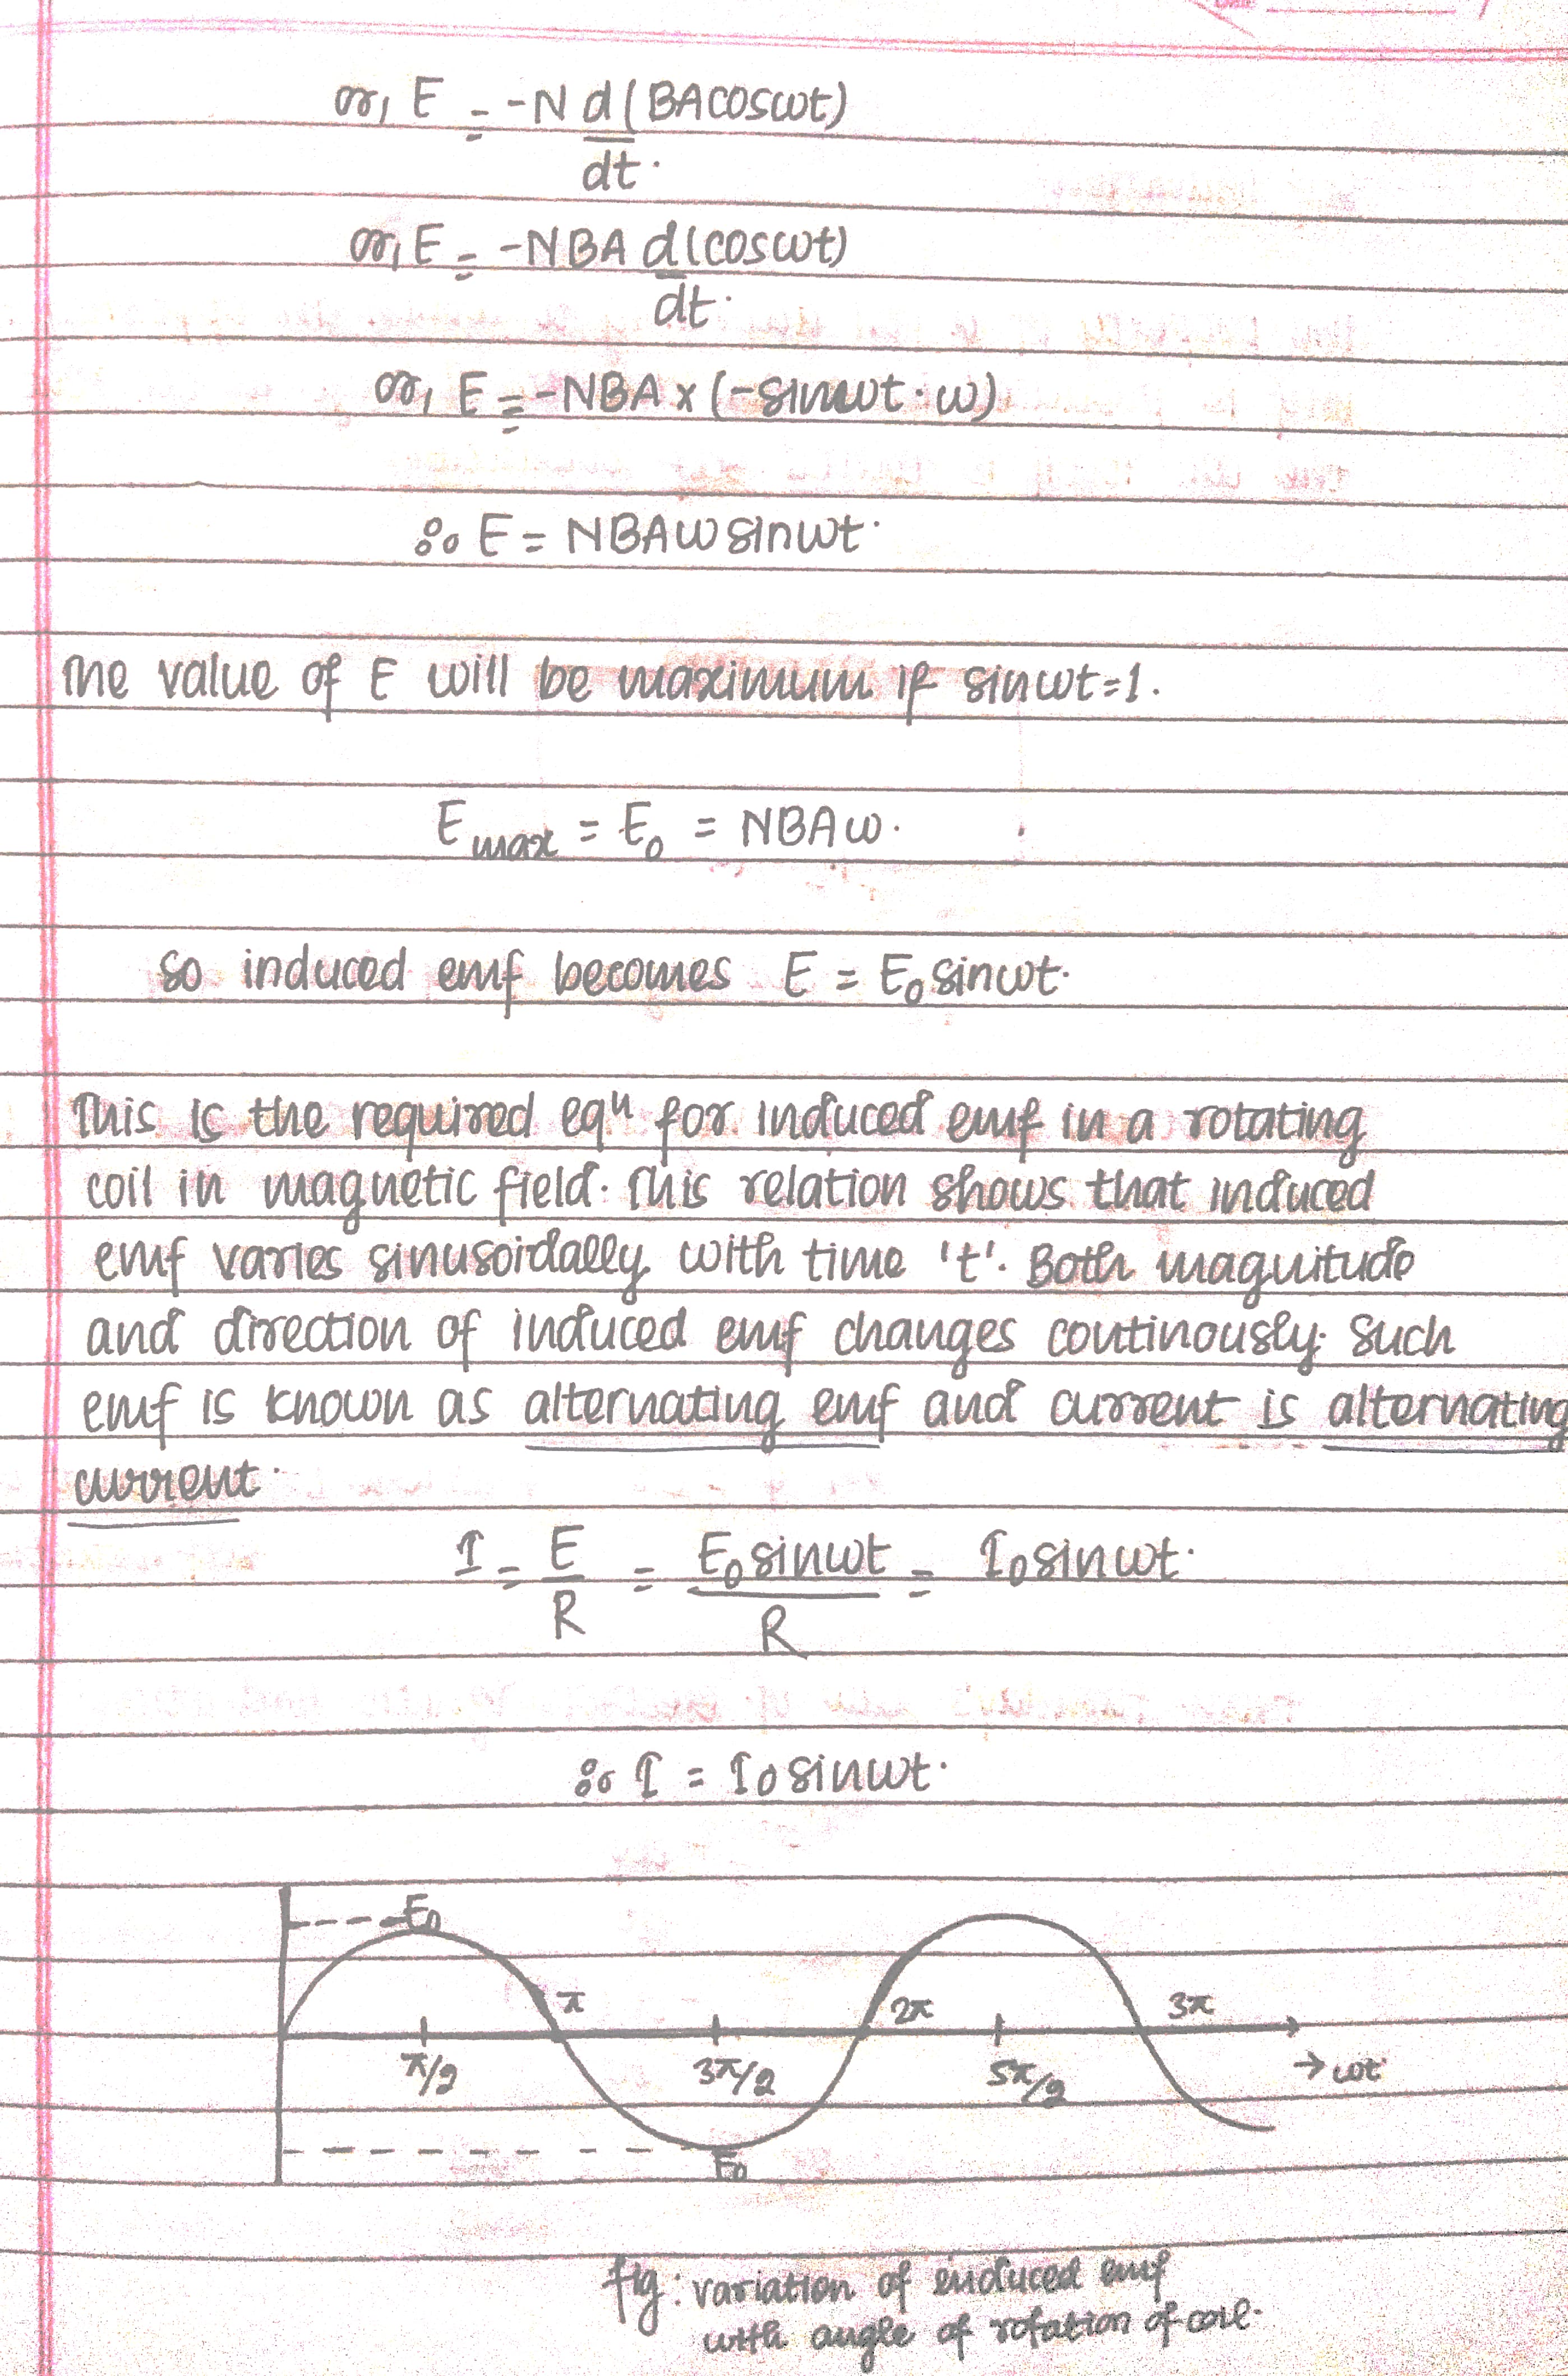 or, E = -N d(BAcoswt)
dt.
or, E = -NBA d(coswt)
dt.
or, E = -NBA x (-sinwt.w)
∴ E = NBAwsinwt.
The value of E will be maximum if sinwt=1.
Emax = E0 = NBAw.
so induced emf becomes E = E0sinwt.
This is the required eqn for induced emf in a rotating
coil in magnetic field. This relation shows that induced
emf varies sinusoidally with time 't'. Both magnitude
and direction of induced emf changes continously. Such
emf is known as alternating emf and current is alternating
current.
I = E = E0sinwt = I0sinwt.
R R
∴ I = I0sinwt.
E0
π 2π 3π
π/2 3π/2 5π/2 → wt
E0
fig: variation of enduced emf
with angle of rotation of coil.